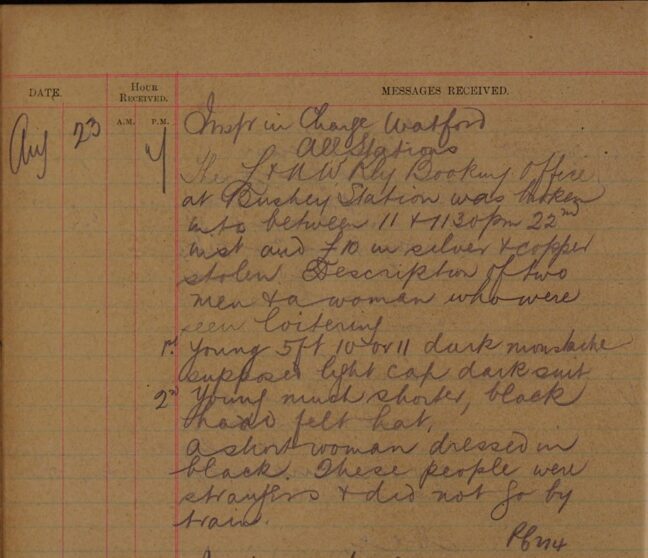 DATE.
HOUR RECEIVED.
MESSAGES RECEIVED.
A.M. P.M.
Aug 23
Inspr in Charge Watford
All Stations
The L & N W Rly Booking Office
at Bushey Station was broken
into between 11 & 11 30 pm 22nd
inst and £10 in silver & copper
stolen Description of two
men & a woman who were
seen loitering
1st Young 5ft 10 or 11 dark moustache
supposed light cap dark suit
2nd Young much shorter, black
hard felt hat,
a short woman dressed in
black. These people were
strangers & did not go by
train.